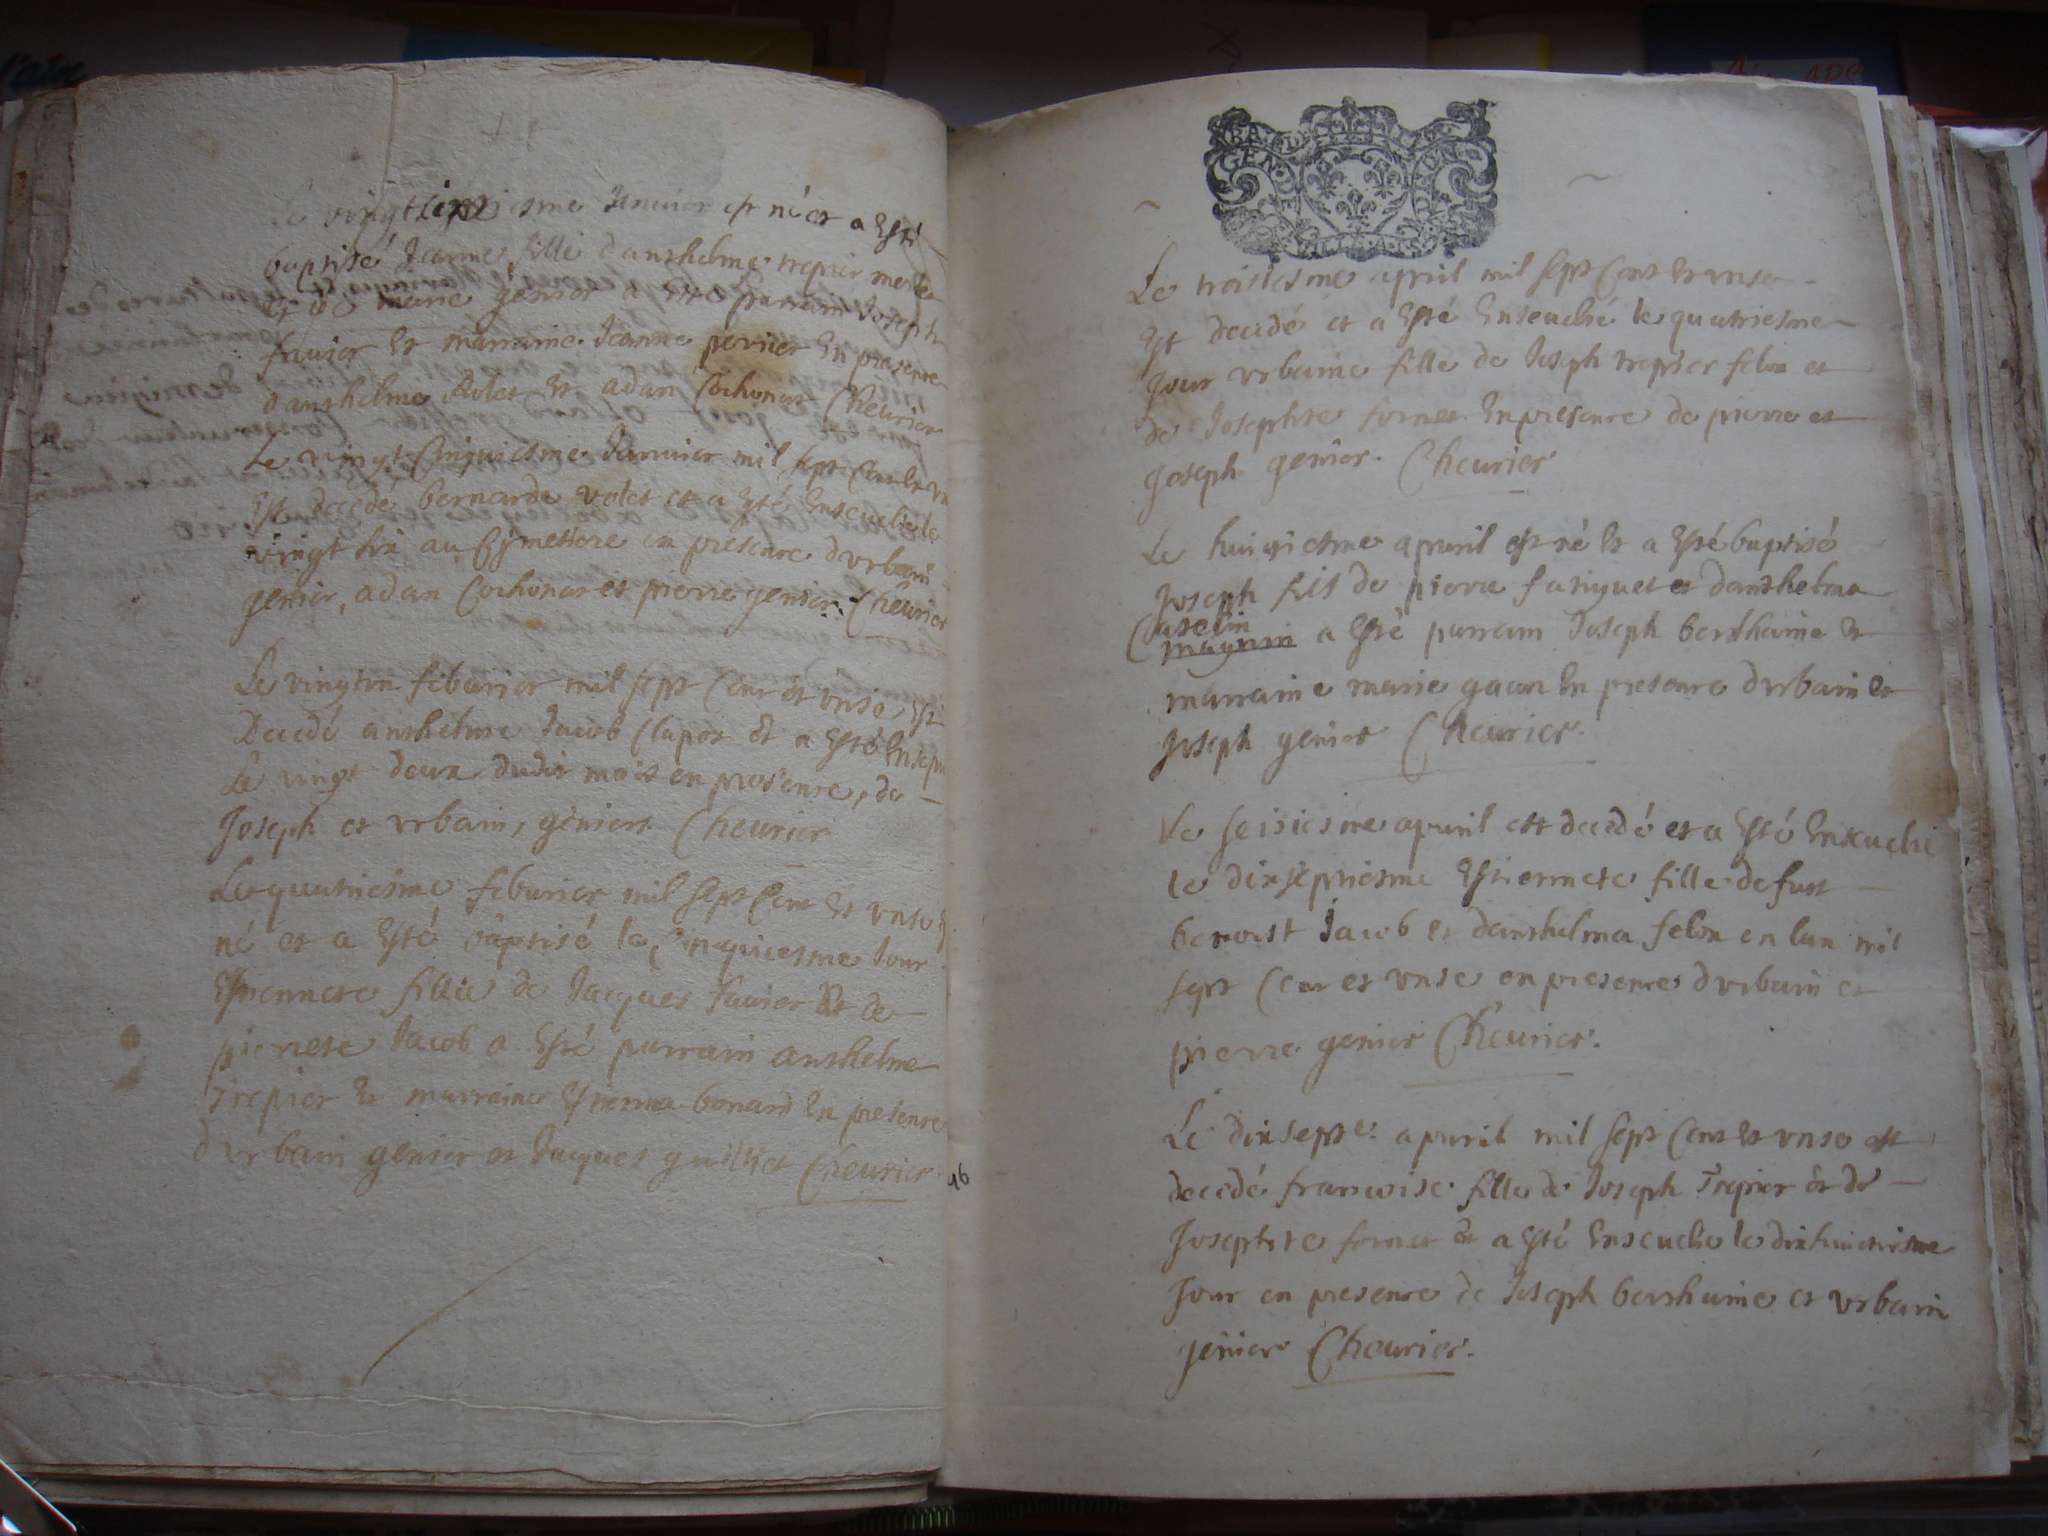 Le vingt iesme Januier est né et a Esté
baptisé Jeanne fille danthelme trepier
et de marie genier a esté parrain Joseph
fauier et marraine Jeanne perrier En presence
danthelme volet Et adan Cochonat Cheurier
Le vingt Cinquiesme Januier mil sept Cent et un
Est decede bernarde volet et a Esté Enseuelie le
vingt six au Cymettere en presence durbain
genier, adan Cochonat et pierre genier. Cheurier
Le vingt un feburier mil sept Cent et unse, Est
Decedé anthelme Jacob Clapot Et a Esté Ensepu
Le vingt deux dudit mois en presence, de
Joseph et urbain, geniers Cheurier
Le quatriesme feburier mil sept Cent Et unse
né et a Esté baptisé le Cinquiesme Jour
Estiennete fillie de Jacques fauier Et de
pierrete Jacob a Esté parrain anthelme
Trepier Et marraine Estienna bonard En presence
durbain genier et Jacques guilliet Cheurier.
46
GEN DE
Le troisiesme apuril mil sept Cent Et unse
Est decedé et a Esté Enseuelie le quatriesme
Jour urbaine fille de Joseph trepier felon et
de Josephte fornet En presence de pierre et
Joseph genier. Cheurier
Le huitiesme apuril est né Et a Esté baptisé
Joseph fils de pierre fatiguet et danthelma
Caselin
magnin a Esté parrain Joseph berthaine Et
marraine marie gacon En presence durbain et
Joseph genier Cheurier.
Le seisiesme apuril est decedé et a Esté Enseuelie
le dixseptiesme Estiennete fille defust
benoist Jacob et danthelma felon en lan mil
sept Cent et unse en presence durbain et
pierre genier Cheurier.
Le dixsept.e apuril mil sept Cent Et unse est
decedé francoise fille de Joseph Trepier et de
Josephte fornet et a Esté Enseuelie le dixhuictiesme
Jour en presence de Joseph berthaine et urbain
genier Cheurier.